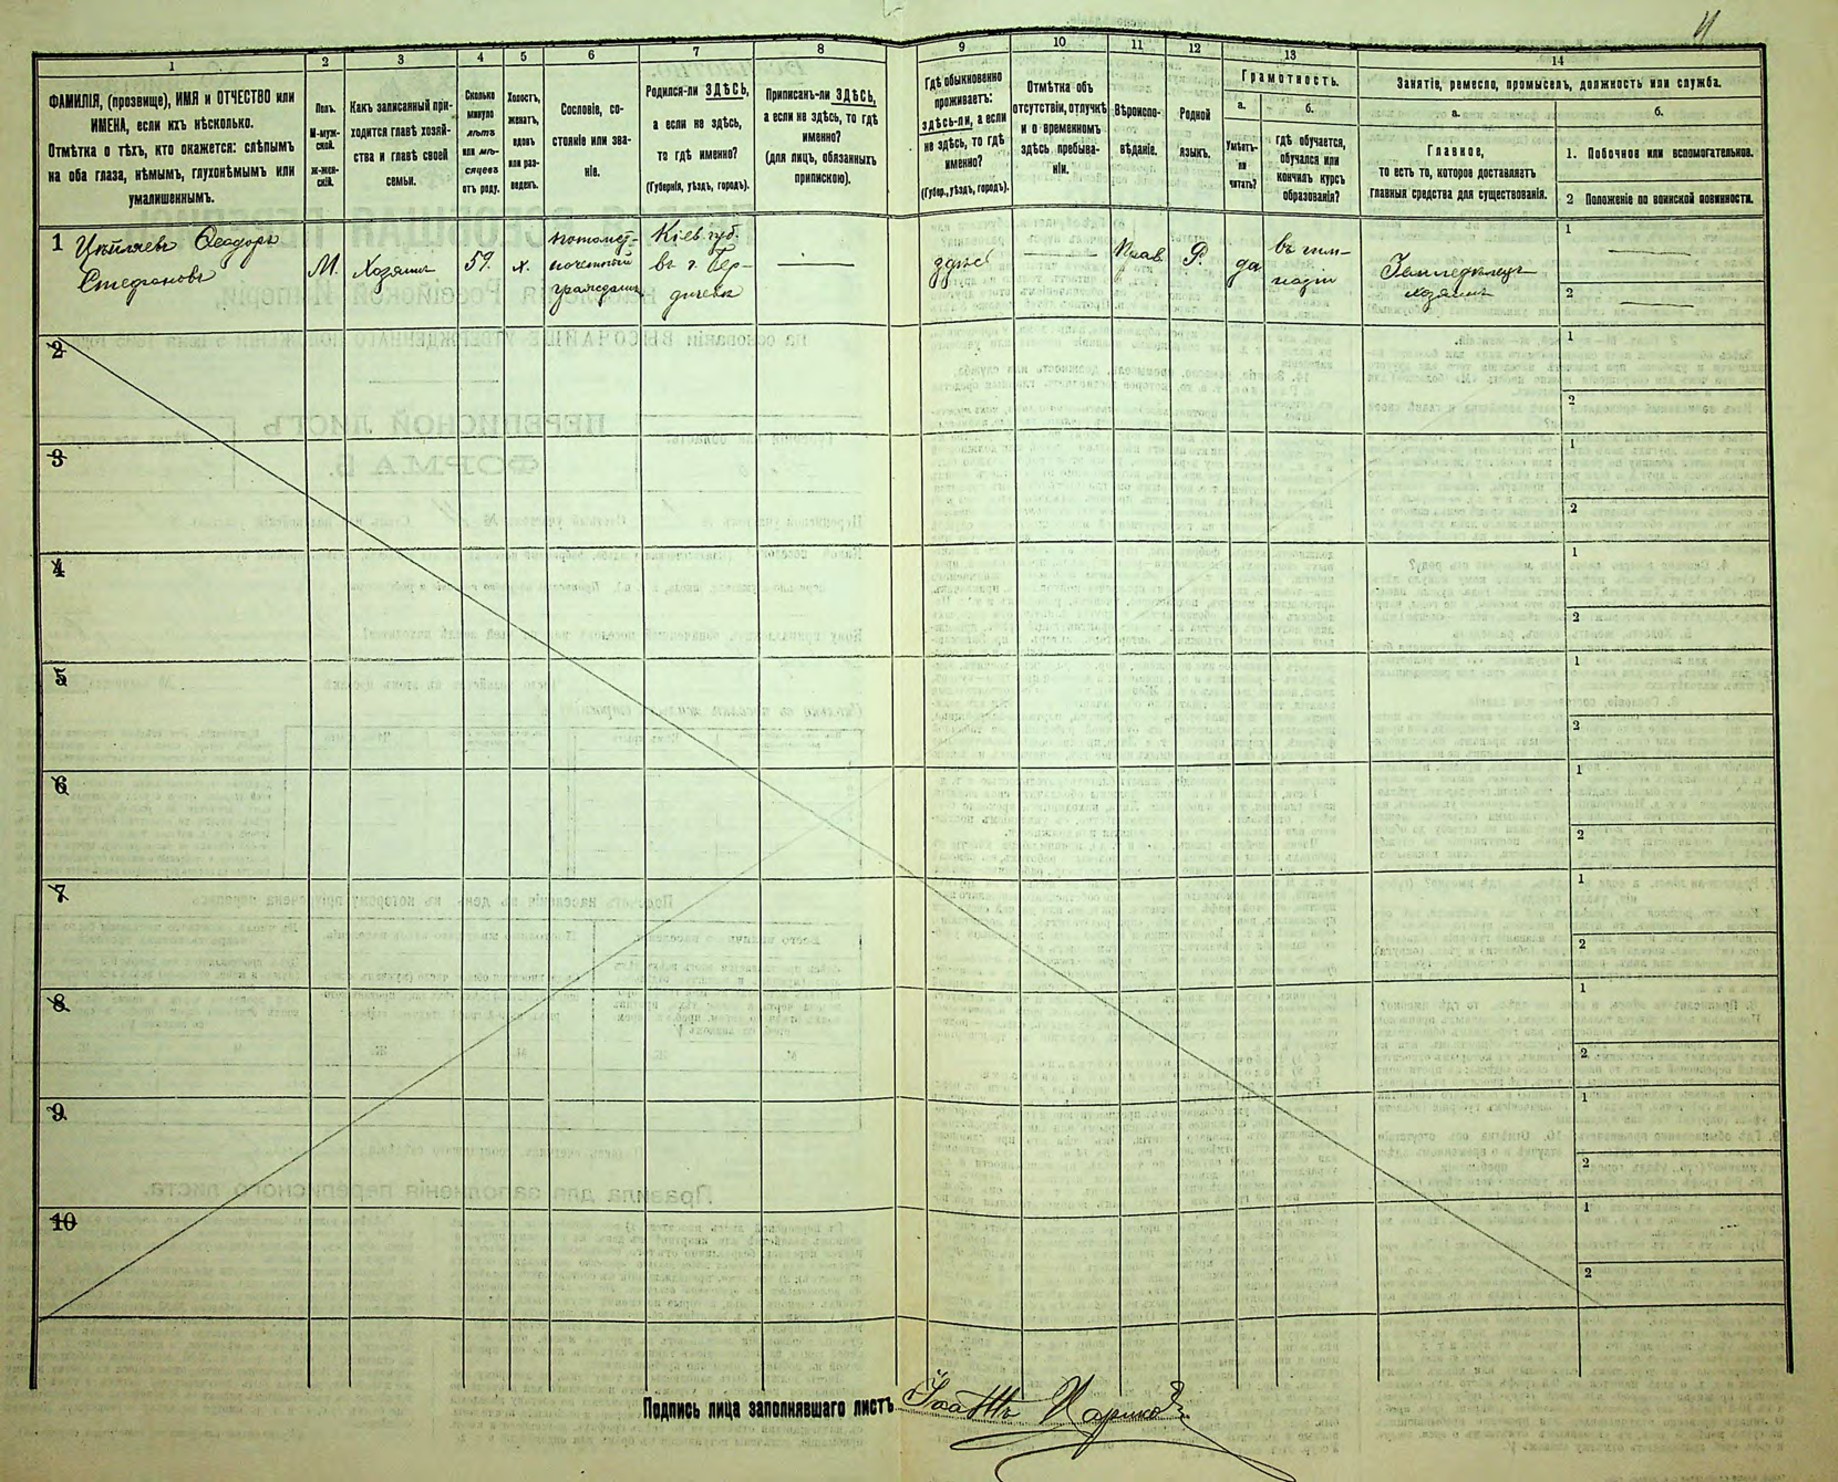 1
2
3
4
5
6
7
8
9
10
11
12
13
14
ФАМИЛІЯ, (прозвище), ИМЯ и ОТЧЕСТВО или
ИМЕНА, если ихъ нѣсколько.
Отмѣтка о тѣхъ, кто окажется: слѣпымъ
на оба глаза, нѣмымъ, глухонѣмымъ или
умалишеннымъ.
Полъ.
М-муж-
ской.
Ж-жен-
скій.
Какъ записанный при-
ходится главѣ хозяй-
ства и главѣ своей
семьи.
Сколько
минуло
лѣтъ
или мѣ-
сяцевъ
отъ роду.
Холостъ,
женатъ,
вдовъ
или раз-
веденъ.
Сословіе, со-
стояніе или зва-
ніе.
Родился-ли ЗДѢСЬ,
а если не здѣсь,
то гдѣ именно?
(Губернія, уѣздъ, городъ).
Приписанъ-ли ЗДѢСЬ,
а если не здѣсь, то гдѣ
именно?
(для лицъ, обязанныхъ
припискою).
Гдѣ обыкновенно
проживаетъ:
здѣсь-ли, а если
не здѣсь, то гдѣ
именно?
(Губер., уѣздъ, городъ).
Отмѣтка объ
отсутствіи, отлучкѣ
и о временномъ
здѣсь пребыва-
ніи.
Вѣроиспо-
вѣданіе.
Родной
языкъ.
Грамотность.
а.
Умѣетъ-
ли
читать?
б.
гдѣ обучается,
обучался или
кончилъ курсъ
образованія?
Занятіе, ремесло, промыселъ, должность или служба.
а.
Главное,
то есть то, которое доставляетъ
главныя средства для существованія.
б.
1. Побочное или вспомогательное.
2 Положеніе по воинской повинности.
1
Ѳеодоръ
Стефановъ
М.
Хозяинъ
59.
х.
потомст-
почетный
гражданинъ
Кіев. губ.
въ г. Бер-
дичевѣ
здѣсь
Прав
Р.
да
въ гим-
назіи
Земледѣлецъ
хозяинъ
1
2
2
1
2
3
1
2
4
1
2
5
1
2
6
1
2
7
1
2
8
1
2
9
1
2
10
1
2
Подпись лица заполнявшаго листъ